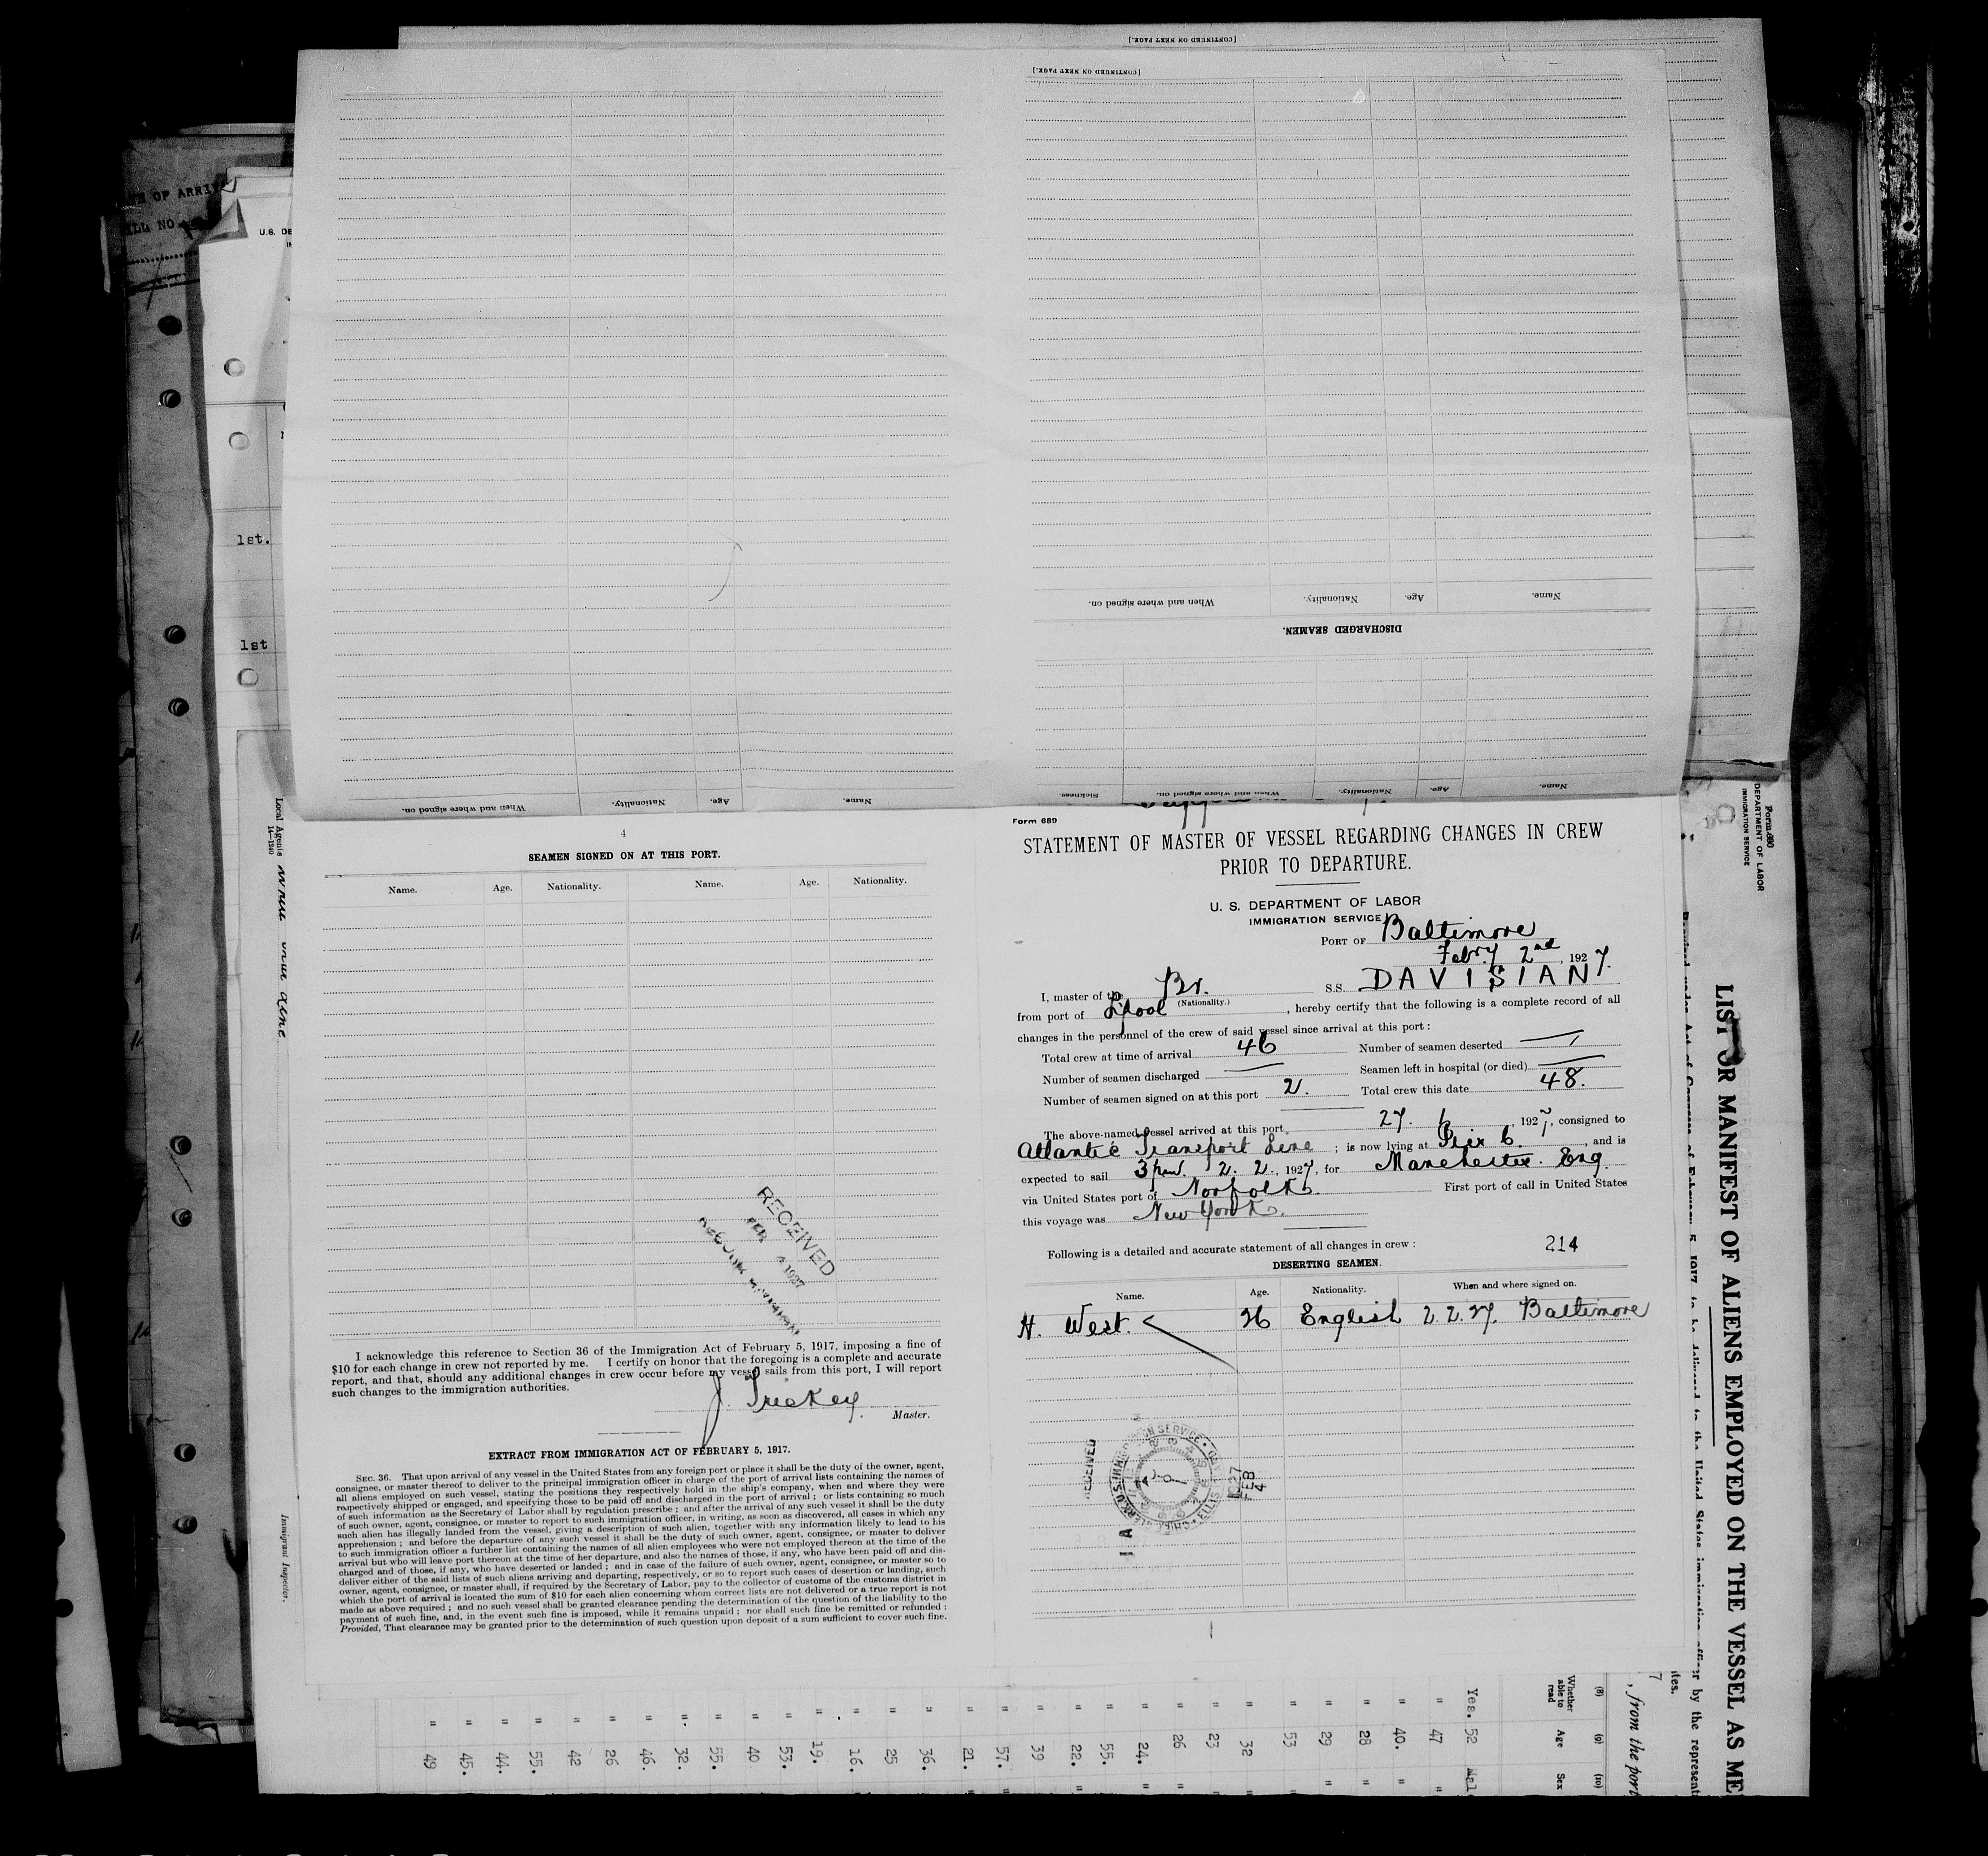 [CONTINUED ON NEXT PAGE.]
[CONTINUED ON NEXT PAGE.]
When and where signed on. Nationality. Age. Name.
DISCHARGED SEAMEN.
Sickness. When and where signed on. Nationality. Age. Name.
When and where signed on. Nationality. Age. Name.
1st.
1st
U.S. DE
Local Agents
14—1240
Immigrant Inspector.
4
SEAMEN SIGNED ON AT THIS PORT.
Name. Age. Nationality. Name. Age. Nationality.
RECEIVED
FEB 4 1927
I acknowledge this reference to Section 36 of the Immigration Act of February 5, 1917, imposing a fine of
$10 for each change in crew not reported by me. I certify on honor that the foregoing is a complete and accurate
report, and that, should any additional changes in crew occur before my vessel sails from this port, I will report
such changes to the immigration authorities.
J. Trickey
Master.
EXTRACT FROM IMMIGRATION ACT OF FEBRUARY 5, 1917.
SEC. 36. That upon arrival of any vessel in the United States from any foreign port or place it shall be the duty of the owner, agent,
consignee, or master thereof to deliver to the principal immigration officer in charge of the port of arrival lists containing the names of
all aliens employed on such vessel, stating the positions they respectively hold in the ship's company, when and where they were
respectively shipped or engaged, and specifying those to be paid off and discharged in the port of arrival; or lists containing so much
of such information as the Secretary of Labor shall by regulation prescribe; and after the arrival of any such vessel it shall be the duty
of such owner, agent, consignee, or master to report to such immigration officer, in writing, as soon as discovered, all cases in which any
such alien has illegally landed from the vessel, giving a description of such alien, together with any information likely to lead to his
apprehension; and before the departure of any such vessel it shall be the duty of such owner, agent, consignee, or master to deliver
to such immigration officer a further list containing the names of all alien employees who were not employed thereon at the time of the
arrival but who will leave port thereon at the time of her departure, and also the names of those, if any, who have been paid off and dis-
charged and of those, if any, who have deserted or landed; and in case of the failure of such owner, agent, consignee, or master so to
deliver either of the said lists of such aliens arriving and departing, respectively, or so to report such cases of desertion or landing, such
owner, agent, consignee, or master shall, if required by the Secretary of Labor, pay to the collector of customs of the customs district in
which the port of arrival is located the sum of $10 for each alien concerning whom correct lists are not delivered or a true report is not
made as above required; and no such vessel shall be granted clearance pending the determination of the question of the liability to the
payment of such fine, and, in the event such fine is imposed, while it remains unpaid; nor shall such fine be remitted or refunded:
Provided, That clearance may be granted prior to the determination of such question upon deposit of a sum sufficient to cover such fine.
Form 689
STATEMENT OF MASTER OF VESSEL REGARDING CHANGES IN CREW
PRIOR TO DEPARTURE.
U. S. DEPARTMENT OF LABOR
IMMIGRATION SERVICE
PORT OF Baltimore
Febry 2nd, 1927.
I, master of the Br. S.S. DAVISIAN
(Nationality.)
from port of L'pool, hereby certify that the following is a complete record of all
changes in the personnel of the crew of said vessel since arrival at this port:
Total crew at time of arrival 46 Number of seamen deserted
Number of seamen discharged — Seamen left in hospital (or died) —
Number of seamen signed on at this port 2. Total crew this date 48.
The above-named vessel arrived at this port 27. 1, 1927, consigned to
Atlantic Transport Line; is now lying at Pier 6., and is
expected to sail 3 pm. 2. 2., 1927, for Manchester. Eng.
via United States port of Norfolk. First port of call in United States
this voyage was New York.
Following is a detailed and accurate statement of all changes in crew: 214
DESERTING SEAMEN.
Name. Age. Nationality. When and where signed on.
H. West. 26 English 2.2.27. Baltimore
RECEIVED
1927 FEB 4
Form 680
DEPARTMENT OF LABOR
IMMIGRATION SERVICE
LIST OR MANIFEST OF ALIENS EMPLOYED ON THE VESSEL AS ME
, from the port
(8) (9) (10)
Whether able to read Age Sex
Yes. 52 Mal
" 47 "
" 40. "
" 28 "
" 29 "
" 53
" 32
" 23
" 26 "
" 24. "
" 55.
" 22. "
" 39
" 57. "
" 21.
" 36.
" 25
" 16.
" 19.
" 53.
" 40
" 55.
" 32.
" 46.
" 26
" 42
" 55.
" 44.
" 45.
" 49